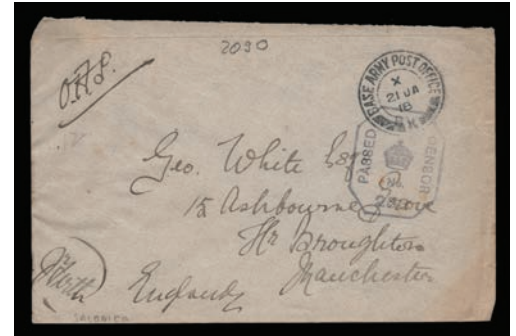 2090
O.A.S.
BASE ARMY POST OFFICE
X
21 JA
18
PASSED
CENSOR
No.
Geo. White Esq
15 Ashbourne Grove
Hr Broughton
Manchester
England
SALONICA